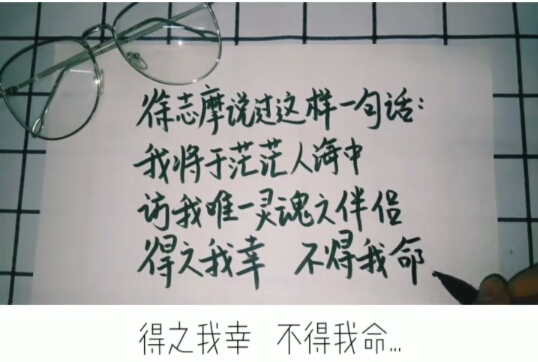 徐志摩说过这样一句话：
我将于茫茫人海中
访我唯一灵魂之伴侣
得之我幸 不得我命
得之我幸 不得我命...